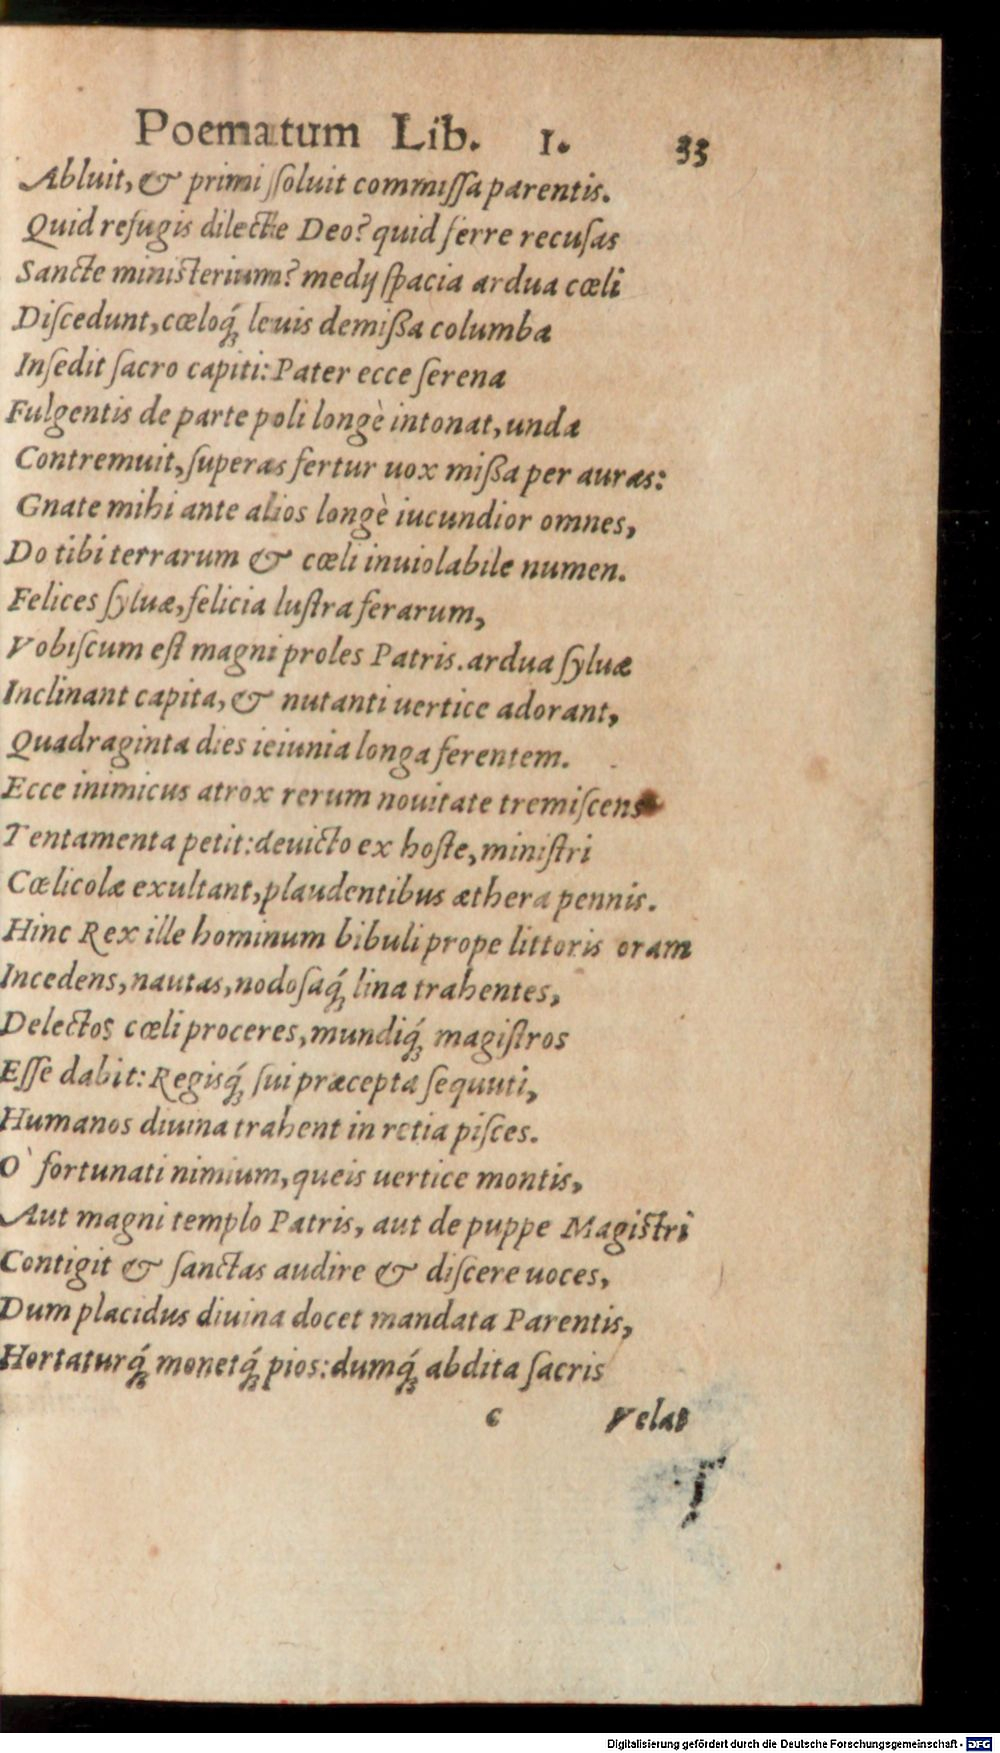 Poematum Lib. I. 33
Abluit, & primi ſſoluit commiſſa parentis.
Quid refugis dilecte Deo? quid ferre recuſas
Sancte ministerium? medij ſpacia ardua cœli
Diſcedunt, cœloq́; leuis demißa columba
Inſedit ſacro capiti: Pater ecce ſerena
Fulgentis de parte poli longè intonat, unda
Contremuit, ſuperas fertur uox mißa per auras:
Gnate mihi ante alios longè iucundior omnes,
Do tibi terrarum & cœli inuiolabile numen.
Felices ſyluæ, felicia luſtra ferarum,
Vobiſcum eſt magni proles Patris. ardua ſyluæ
Inclinant capita, & nutanti uertice adorant,
Quadraginta dies ieiunia longa ferentem.
Ecce inimicus atrox rerum nouitate tremiſcens
Tentamenta petit: deuicto ex hoſte, miniſtri
Cœlicolæ exultant, plaudentibus æthera pennis.
Hinc Rex ille hominum bibuli prope littoris oram
Incedens, nautas, nodoſaq́; lina trahentes,
Delectos cœli proceres, mundiq́; magiſtros
Eſſe dabit: Regisq́; ſui præcepta ſequuti,
Humanos diuina trahent in retia piſces.
O` fortunati nimium, queis uertice montis,
Aut magni templo Patris, aut de puppe Magistri
Contigit & ſanctas audire & diſcere uoces,
Dum placidus diuina docet mandata Parentis,
Hortaturq́; monetq́; pios: dumq́; abdita ſacris
c Velat
Digitalisierung gefördert durch die Deutsche Forschungsgemeinschaft - DFG